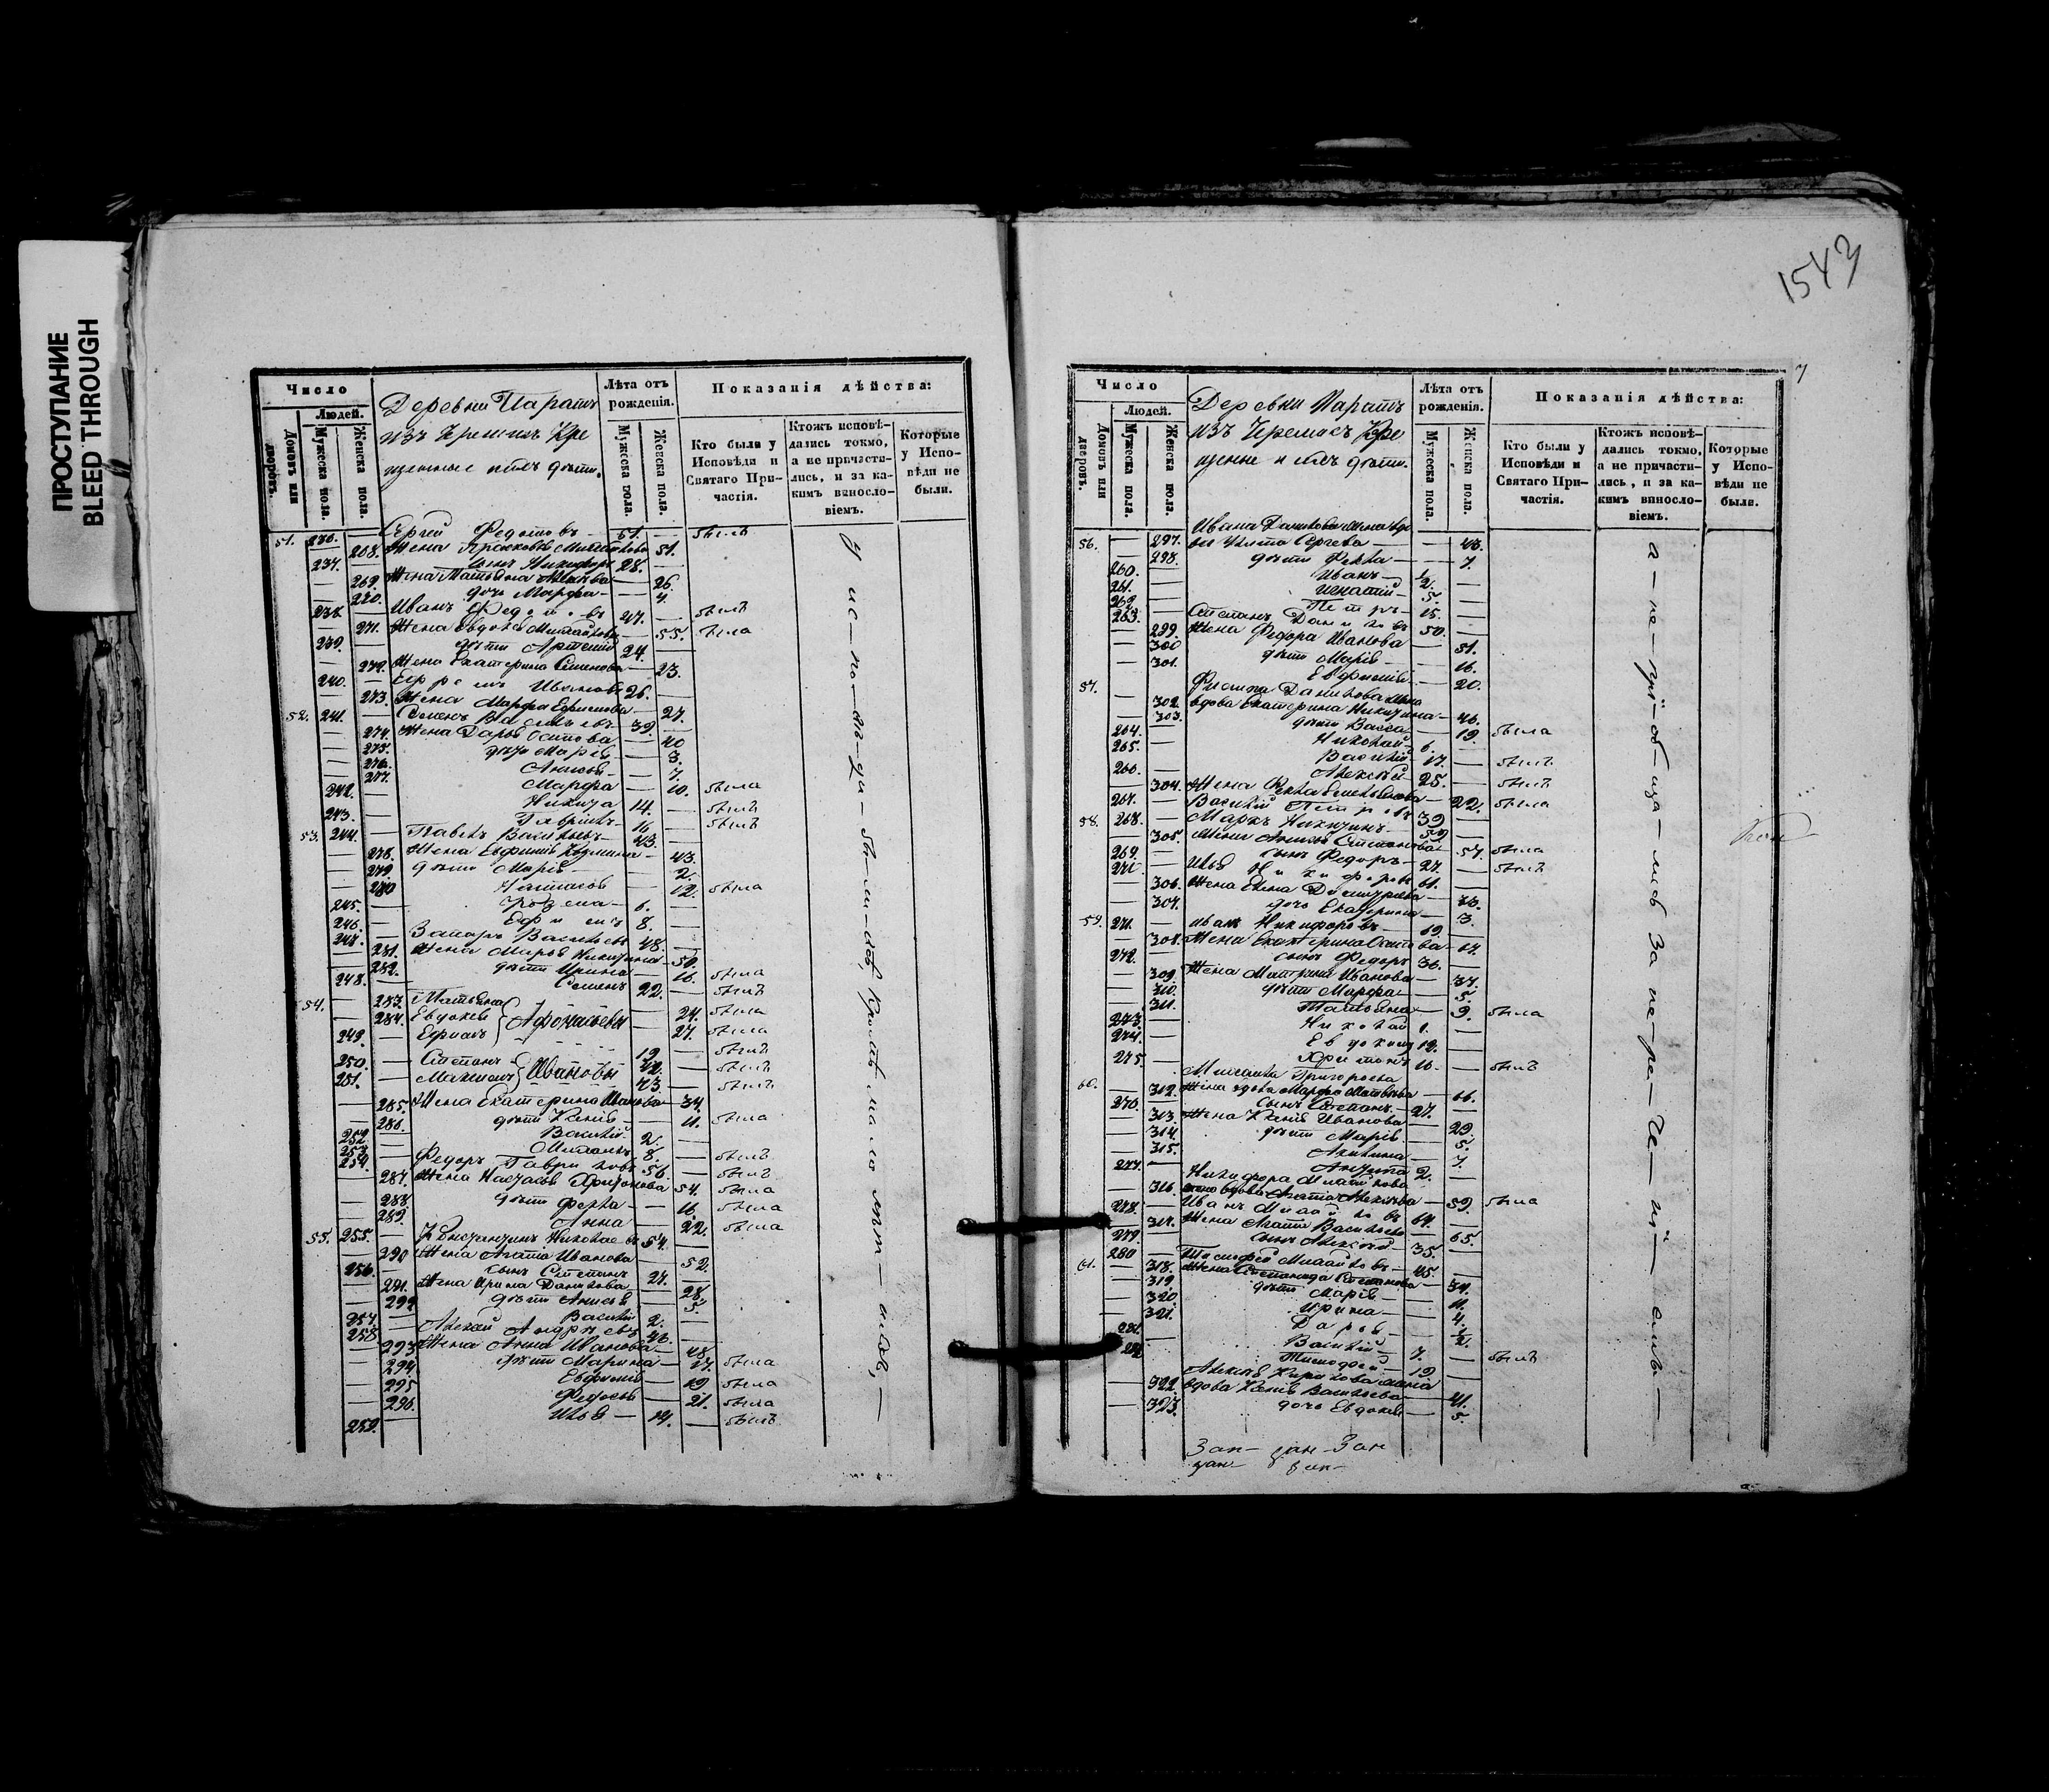 ПРОСТУПАНИЕ
BLEED THROUGH
Число
Людей.
Домовъ или дворовъ.
Мужеска пола.
Женска пола.
Деревни Паратъ
изъ Черемисъ Кре
щенные и ихъ дѣти.
Лѣта отъ рожденія.
Мужеска пола.
Женска пола.
Показанія дѣйства:
Кто были у Исповѣди и Святаго Причастія.
Ктожъ исповѣдались токмо, а не причастились, и за какимъ винословіемъ.
Которые у Исповѣди не были.
51. 236. — Сергей Федотовъ — 51. — былъ
— 268. Жена Прасковья — 51.
237. — сынъ Никифоръ 28. —
— 269. Жена Татьяна — 26.
— 270. дочь Марфа — 4.
238. Иванъ Федотовъ 47. — былъ
— 271. Жена Евдокія — 55. была
239. — дѣти Артемій 24. —
— 272. Жена Екатерина Семенова — 23.
240. — Ефремъ Ивановъ 26. —
— 273. Жена Марфа Ефимова — 27.
52. 241. — Семенъ Васильевъ — 39. —
— 274. Жена Дарья Осипова — 40
— 275. дѣти Марія — 3.
— 276. Анисья — 7.
— 277. Марфа — 10. была
242. — Никита 14. — былъ
243. — Гаврилъ — 16 — былъ
53. 244. — Павелъ Васильевъ — 43. —
— 278. Жена Евфимія Кузмина — 43.
— 279. дѣти Марія — 2.
— 280 Настасья — 12. была
245. — Кузьма — 6. —
246. — Ефимъ 8. —
247. — Захаръ Васильевъ 48. —
— 281. Жена Марья Никитина — 50.
— 282. дѣти Ирина — 16. была
248. — Семенъ 22. — былъ
54. — 283. Татьяна
— 284. Евдокія } Афонасьевы — 24. была
249. — Ефимъ — 27. была
19 — былъ
250. — Степанъ
251. — Максимъ } Ивановы 22. — былъ
43 — былъ
— 285. Жена Екатерина Иванова — 34.
— 286. дѣти Ксенія — 11. была
252. — Василій 2. —
253. —
254. — Федоръ Гавриловъ 56 — былъ
— 287. Жена Настасья Харитонова 54. была
— 288. дѣти Фекла — 16. была
— 289. Анна — 22. была
55. 255. — Константинъ Николаевъ 54. —
— 290 Жена Агафія Иванова — 52.
256. — сынъ Степанъ 27. —
— 291. Жена Ирина Данилова — 28.
— 292 дѣти Анисья — 5.
257 — Василій 2. —
258. Алексѣй Андреевъ 46. —
— 293 Жена Анна Иванова — 48.
— 294. дѣти Марина — 17. была
— 295 Евфимія — 19 была
— 296. Федосья — 21. была
259. Илья — 14. — былъ
У ис—по—вѣ—ди—бы—ли—всѣ,
1543
7
Число
Людей.
Домовъ или дворовъ.
Мужеска пола.
Женска пола.
Деревни Паратъ
изъ Черемисъ Кре
щенные и ихъ дѣти.
Лѣта отъ рожденія.
Мужеска пола.
Женска пола.
Показанія дѣйства:
Кто были у Исповѣди и Святаго Причастія.
Ктожъ исповѣдались токмо, а не причастились, и за какимъ винословіемъ.
Которые у Исповѣди не были.
Ивана Данилова жена вдо
56. — 297. ва Улита Сергеева — 43.
— 298. дѣти Фекла — 7.
260. Иванъ ½ —
261. Игнатій 5. —
262 Петръ 15. —
263. Степанъ Даниловъ 50. —
— 299. Жена Федора Иванова — 51.
— 300 дѣти Марія — 16.
— 301. Евфимія — 20.
57. Филипа Данилова жена
— 302. вдова Екатерина Никитина — 46.
— 303. дѣти Васса — 19. была
264. — Николай 6. —
265. — Василій 17. — былъ
266. — Алексѣй 25. — былъ
— 304. Жена Фекла Емельянова — 22. была
267. — Василій Петровъ 39 —
58. 268. — Маркъ Никитинъ 59 —
— 305. Жена Анисья Степанова — 57. была
269. — сынъ Федоръ 27. — былъ
270. — Илья Никифоровъ 61. —
— 306. Жена Елена Дмитриева
— 307. дочь Екатерина — 3.
59. 271. — Иванъ Никифоровъ 69. —
— 308. Жена Екатерина Осипова 67.
272. — сынъ Федоръ 36. —
— 309. Жена Матрена Иванова — 37.
— 310. дѣти Марфа — 5.
— 311. Татьяна — 9. была
273. Николай 1. —
274. Евдокимъ 12. —
275. Харитонъ 16. — былъ
60. Михаила Григорьева
— 312. жена вдова Марфа Матвѣева — 66.
276. — сынъ Степанъ 27. —
— 313. Жена Ксенія Иванова — 29
— 314. дѣти Марія — 5.
— 315. Акилина — 7.
277. — 2. —
Никифора Михайлова
— 316. жена вдова Агафія Алексѣева — 59. была
278. — Иванъ Михайловъ 67. —
— 317. Жена Агафія Васильева — 65.
279. — сынъ Алексѣй 35. —
61. 280 — Тимофей Михайловъ 45. —
— 318. Жена Степанида Степанова — 37.
— 319 дѣти Марія — 11.
— 320 Ирина — 4.
— 321. Дарья — ½.
281. — Василій 7. —
282 Тимофей 19. — былъ
Алексѣя Кирилова жена
— 322. вдова Ксенія Васильева — 41.
— 323. дочь Евдокія — 5.
а—не—прі—об—ща—лись За не—ра—че—ні—емъ—